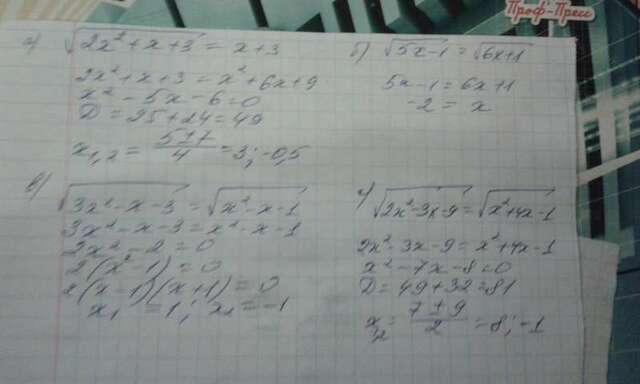 Проф-Пресс
а) √(2x²+x+3) = x+3
2x²+x+3 = x²+6x+9
x²-5x-6=0
D = 25+24=49
x₁,₂ = (5±7)/4 = 3; -0,5
б) √(5x-1) = √(6x+1)
5x-1=6x+1
-2 = x
в) √(3x²-x-3) = √(x²-x-1)
3x²-x-3=x²-x-1
2x²-2=0
2(x²-1)=0
2(x-1)(x+1)=0
x₁ = 1; x₂ = -1
г) √(2x²-3x-9) = √(x²+4x-1)
2x²-3x-9=x²+4x-1
x²-7x-8=0
D=49+32=81
x₁,₂ = (7±9)/2 = 8; -1